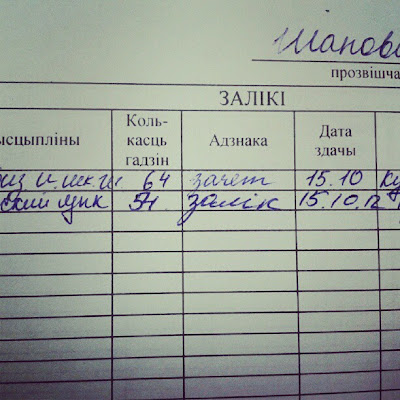 Шапова
прозвішча
ЗАЛІКІ
ысцыпліны Коль-касць гадзін Адзнака Дата здачы
и.шк.ги 64 зачет 15.10 Ку
ский 54 залік 15.10.12